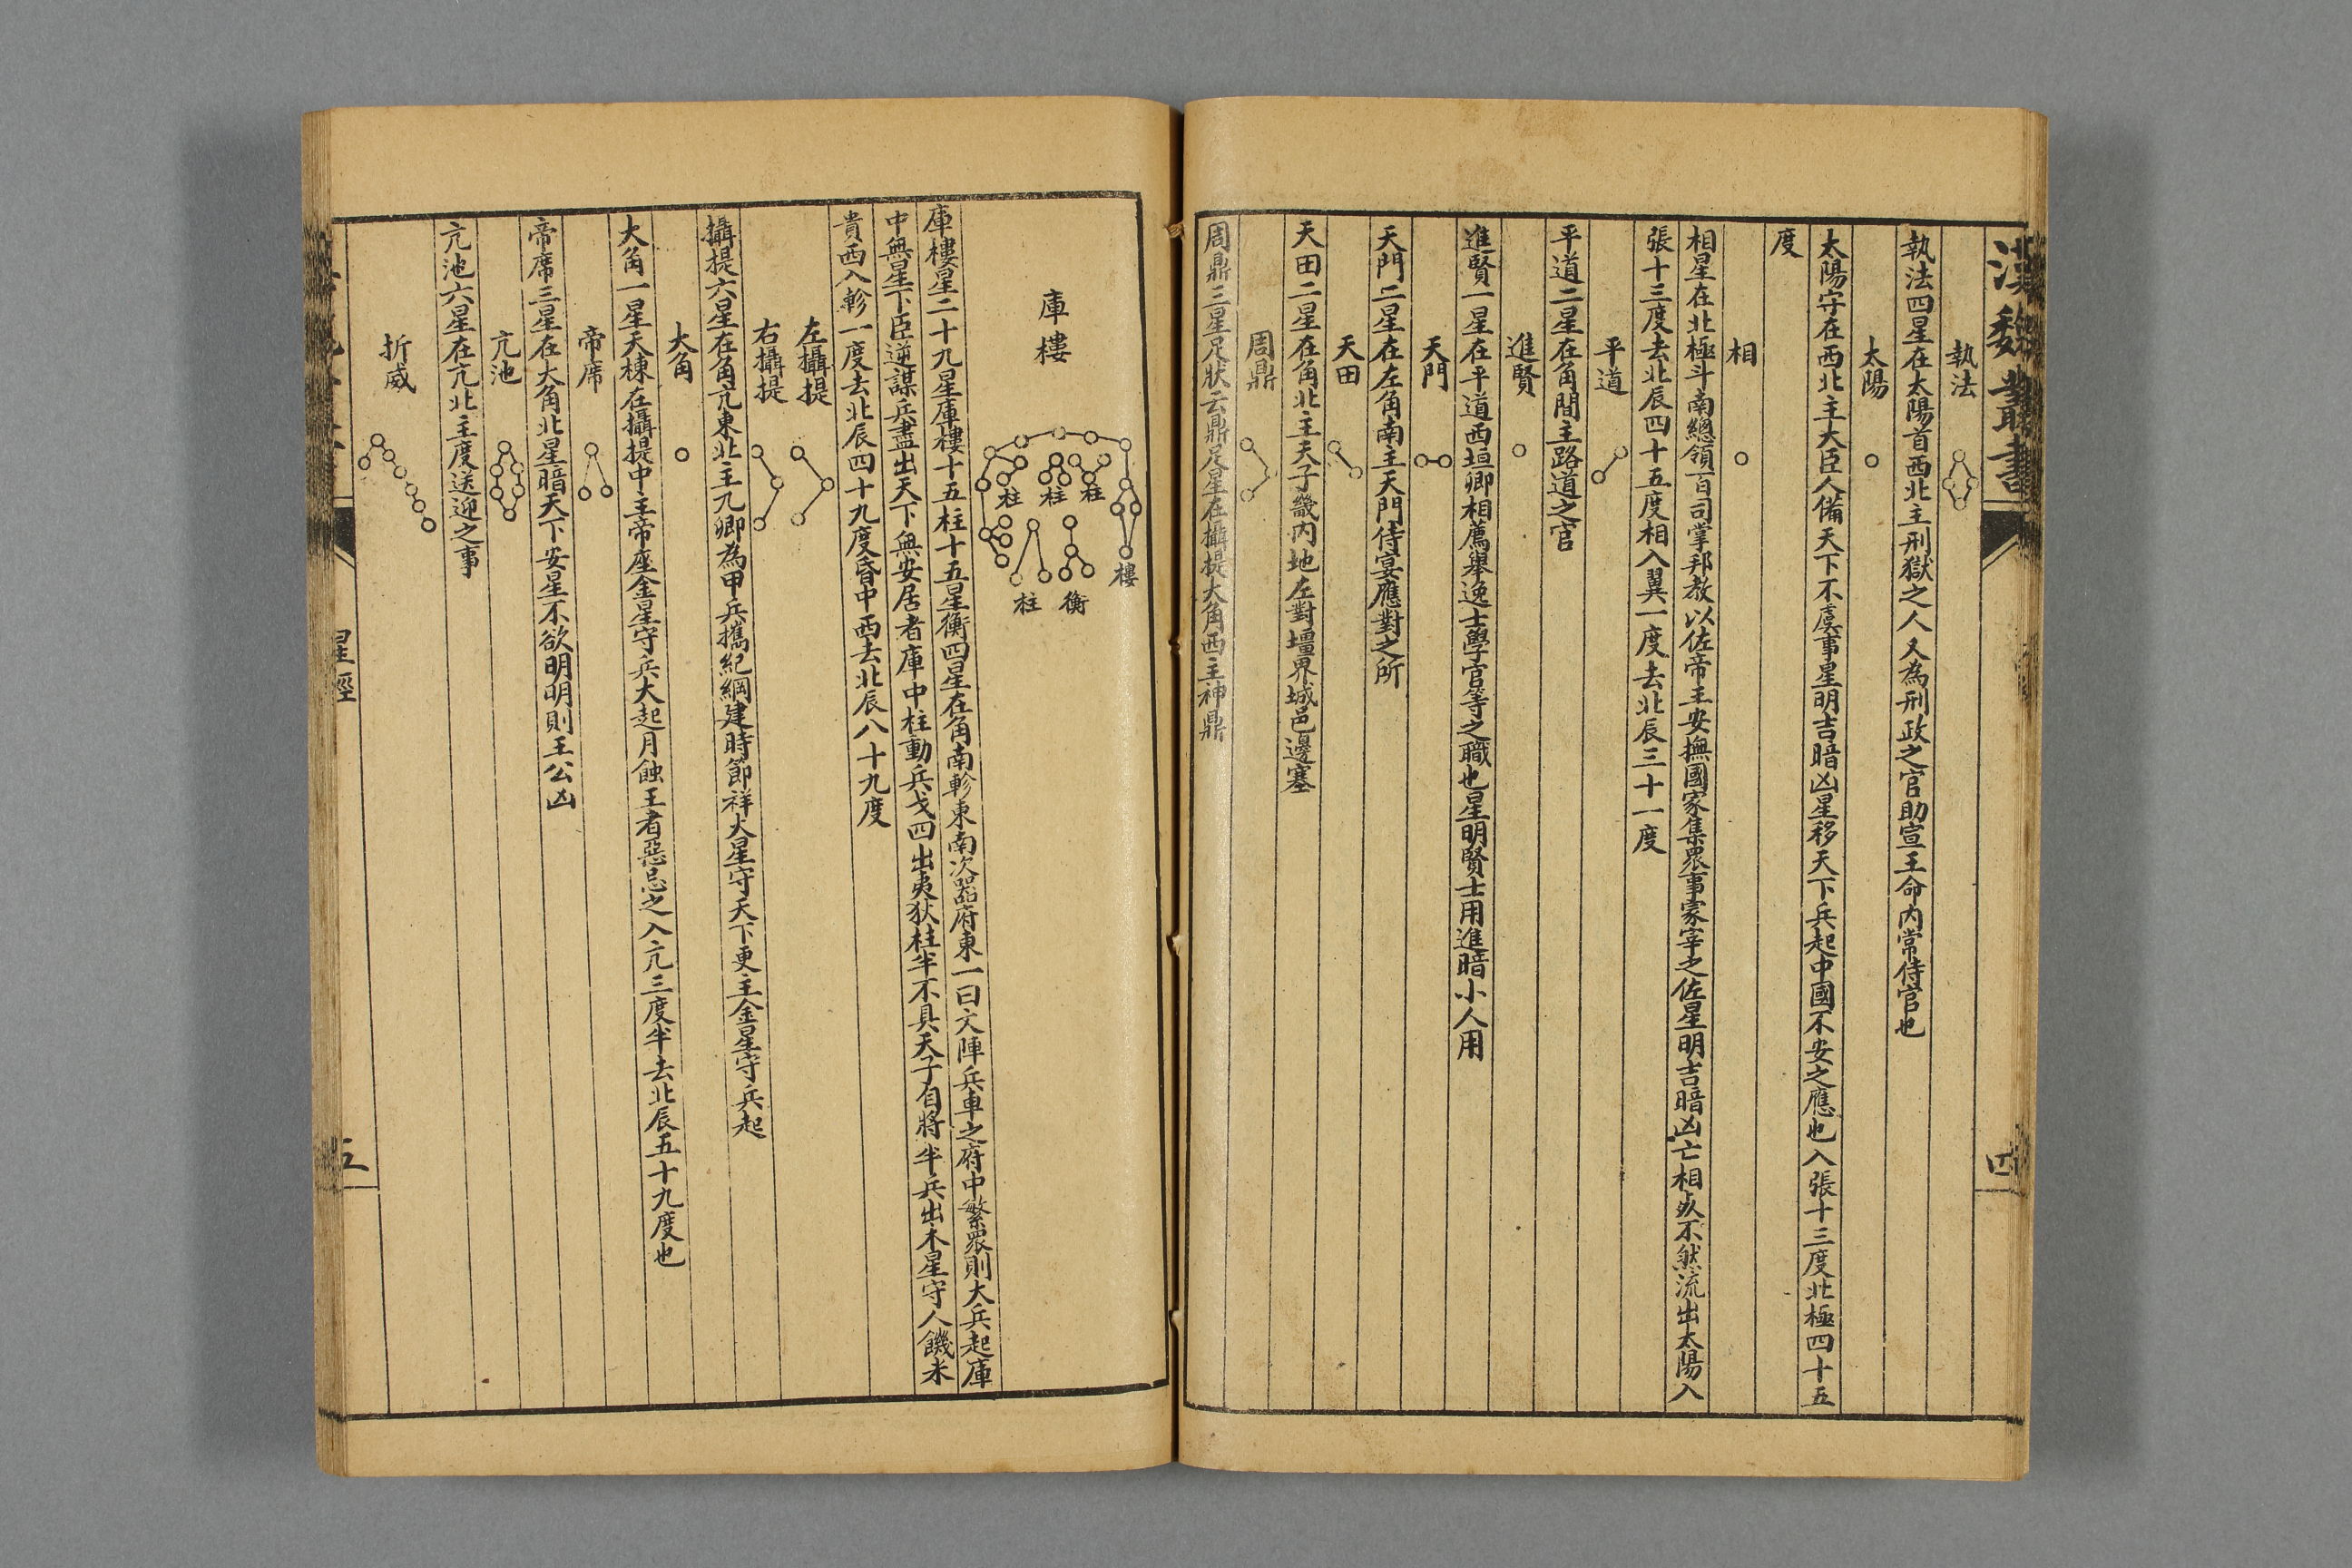 漢魏叢書
四
執法
執法四星在太陽首西北主刑獄之人又為刑政之官助宣王命內常侍官也
太陽
太陽守在西北主大臣人備天下不虞事星明吉暗凶星移天下兵起中國不安之應也入張十三度北極四十五
度
相
相星在北極斗南總領百司掌邦教以佐帝王安撫國家集眾事冢宰之佐星明吉暗凶亡相失不然流出太陽入
張十三度去北辰四十五度相入翼一度去北辰三十一度
平道
平道二星在角間主路道之官
進賢
進賢一星在平道西垣卿相薦舉逸士學官等之職也星明賢士用進暗小人用
天門
天門二星在左角南主天門侍宴應對之所
天田
天田二星在角北主天子畿內地左對壇界城邑邊塞
周鼎
周鼎三星足狀云鼎足星在攝提大角西主神鼎
庫樓
柱
柱
柱
樓
衡
柱
庫樓星二十九星庫樓十五柱十五星衡四星在角南軫東南次器府東一曰文陣兵車之府中繁眾則大兵起庫
中無星下臣逆謀兵盡出天下無安居者庫中柱動兵戈四出夷狄柱半不具天子自將半兵出木星守人饑米
貴西入軫一度去北辰四十九度昏中西去北辰八十九度
左攝提
右攝提
攝提六星在角亢東北主九卿為甲兵攜紀綱建時節祥大星守天下更主金星守兵起
大角
大角一星天棟在攝提中主帝座金星守兵大起月蝕王者惡忌之入亢三度半去北辰五十九度也
帝席
帝席三星在大角北星暗天下安星不欲明明則王公凶
亢池
亢池六星在亢北主度送迎之事
折威
星經
五